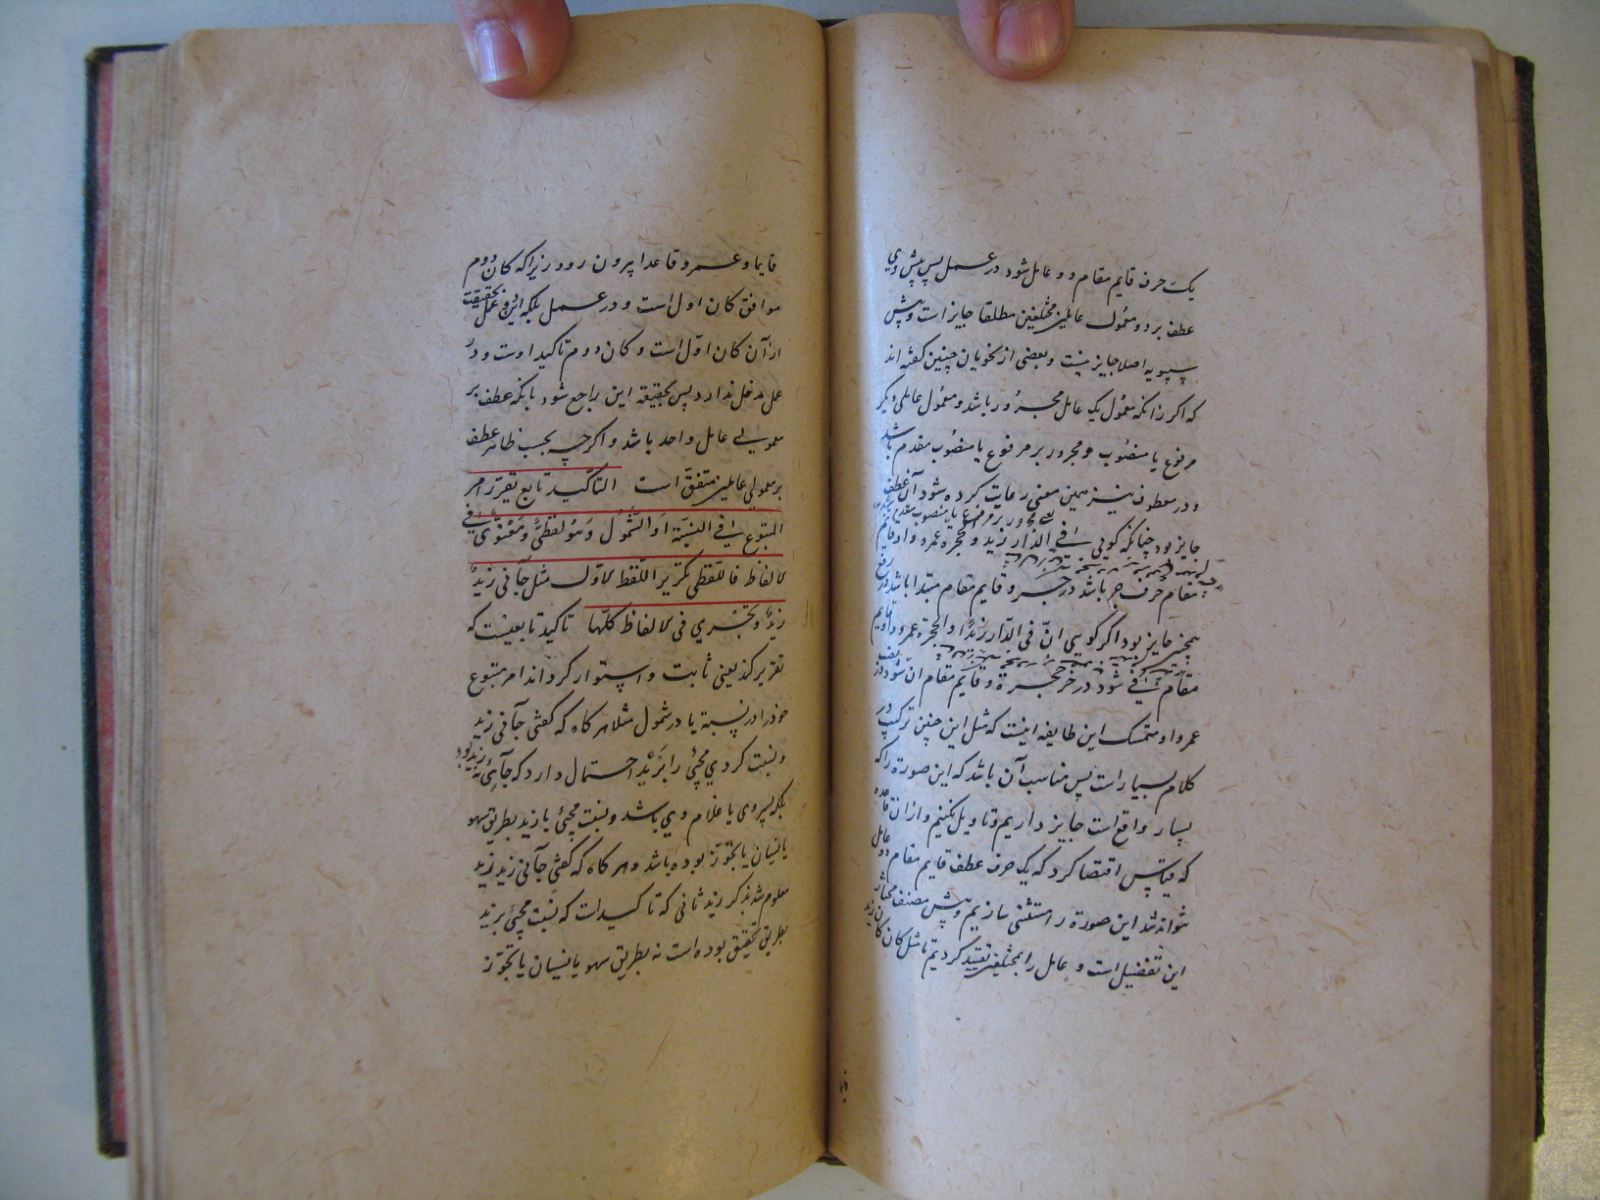 یک حرف قایم مقام دو عامل شود در عمل پس پیش وی
عطف بر دو معمول عاملین مختلفین مطلقا جایز است و پیش
سیبویه اصلا جایز نیست و بعضی از نحویان چنین گفته اند
که اگر زانکه معمول یک عامل مجرور باشد و معمول عاملی دیگر
مرفوع یا منصوب و مجرور بر مرفوع یا منصوب مقدم باشد
و در معطوف نیز همین معنی رعایت کرده شود آن عطف
جایز بود چنانکه گویی فی الدار زید و الحجرة عمرو واو قایم
مقام حرف جر باشد در جر و قایم مقام مبتدا باشد در رفع
همچنین جایز بود اگر گویی ان فی الدار زیدا والحجرة عمروا واو قایم
مقام فی شود در جر حجرة و قایم مقام ان شود در نصب
عمروا و متمسک این طایفه اینست که مثل این چنین ترکیب در
کلام بسیار است پس مناسب آن باشد که این صورة را که
بسیار واقع است جایز داریم و تاویل نکنیم و ازان قاعده
که قیاس اقتضا کرد که یک حرف عطف قایم مقام دو عامل
نتواند شد این صورة را مستثنی سازیم و پیش مصنف مختار
این تفصیل است و عامل را بمختلفین تقیید کردیم تا مثل کان کان زید
قایما
قایما و عمرو قاعدا بیرون رود زیرا که کان دوم
موافق کان اول است و در عمل بلکه این عمل بحقیقت
از آن کان اول است و کان دوم تاکید اوست و در
عمل مدخل ندارد پس بحقیقة این راجع شود بانکه عطف بر
معمولی عامل واحد باشد و اگرچه بحسب ظاهر عطف
بر معمولی عاملین متفق است التاکید تابع یقرر امر
المتبوع فی النسبة او الشمول وهو لفظی ومعنوی فی
لالفاظ فاللفظی تکریر اللفظ لاول مثل جآنی زید
زید ویجری فی لالفاظ کلها تاکید تابعیست که
تقریر کند یعنی ثابت و استوار گرداند امر متبوع
خود را در نسبة یا در شمول مثلا هرکاه که گفتی جآنی زید
و نسبت کردی مجیئ را بزید احتمال دارد که جآئی نه زید بود
بلکه پسر وی یا غلام وی باشد و نسبت مجیئ با زید بطریق سهو
یا نسیان یا تجوز بوده باشد و هر کاه که گفتی جآنی زید زید
معلوم شد بذکر زید ثانی که تاکیدات که نسبت مجیئ بزید
بطریق تحقیق بوده است نه بطریق سهو یا نسیان یا تجوز ز